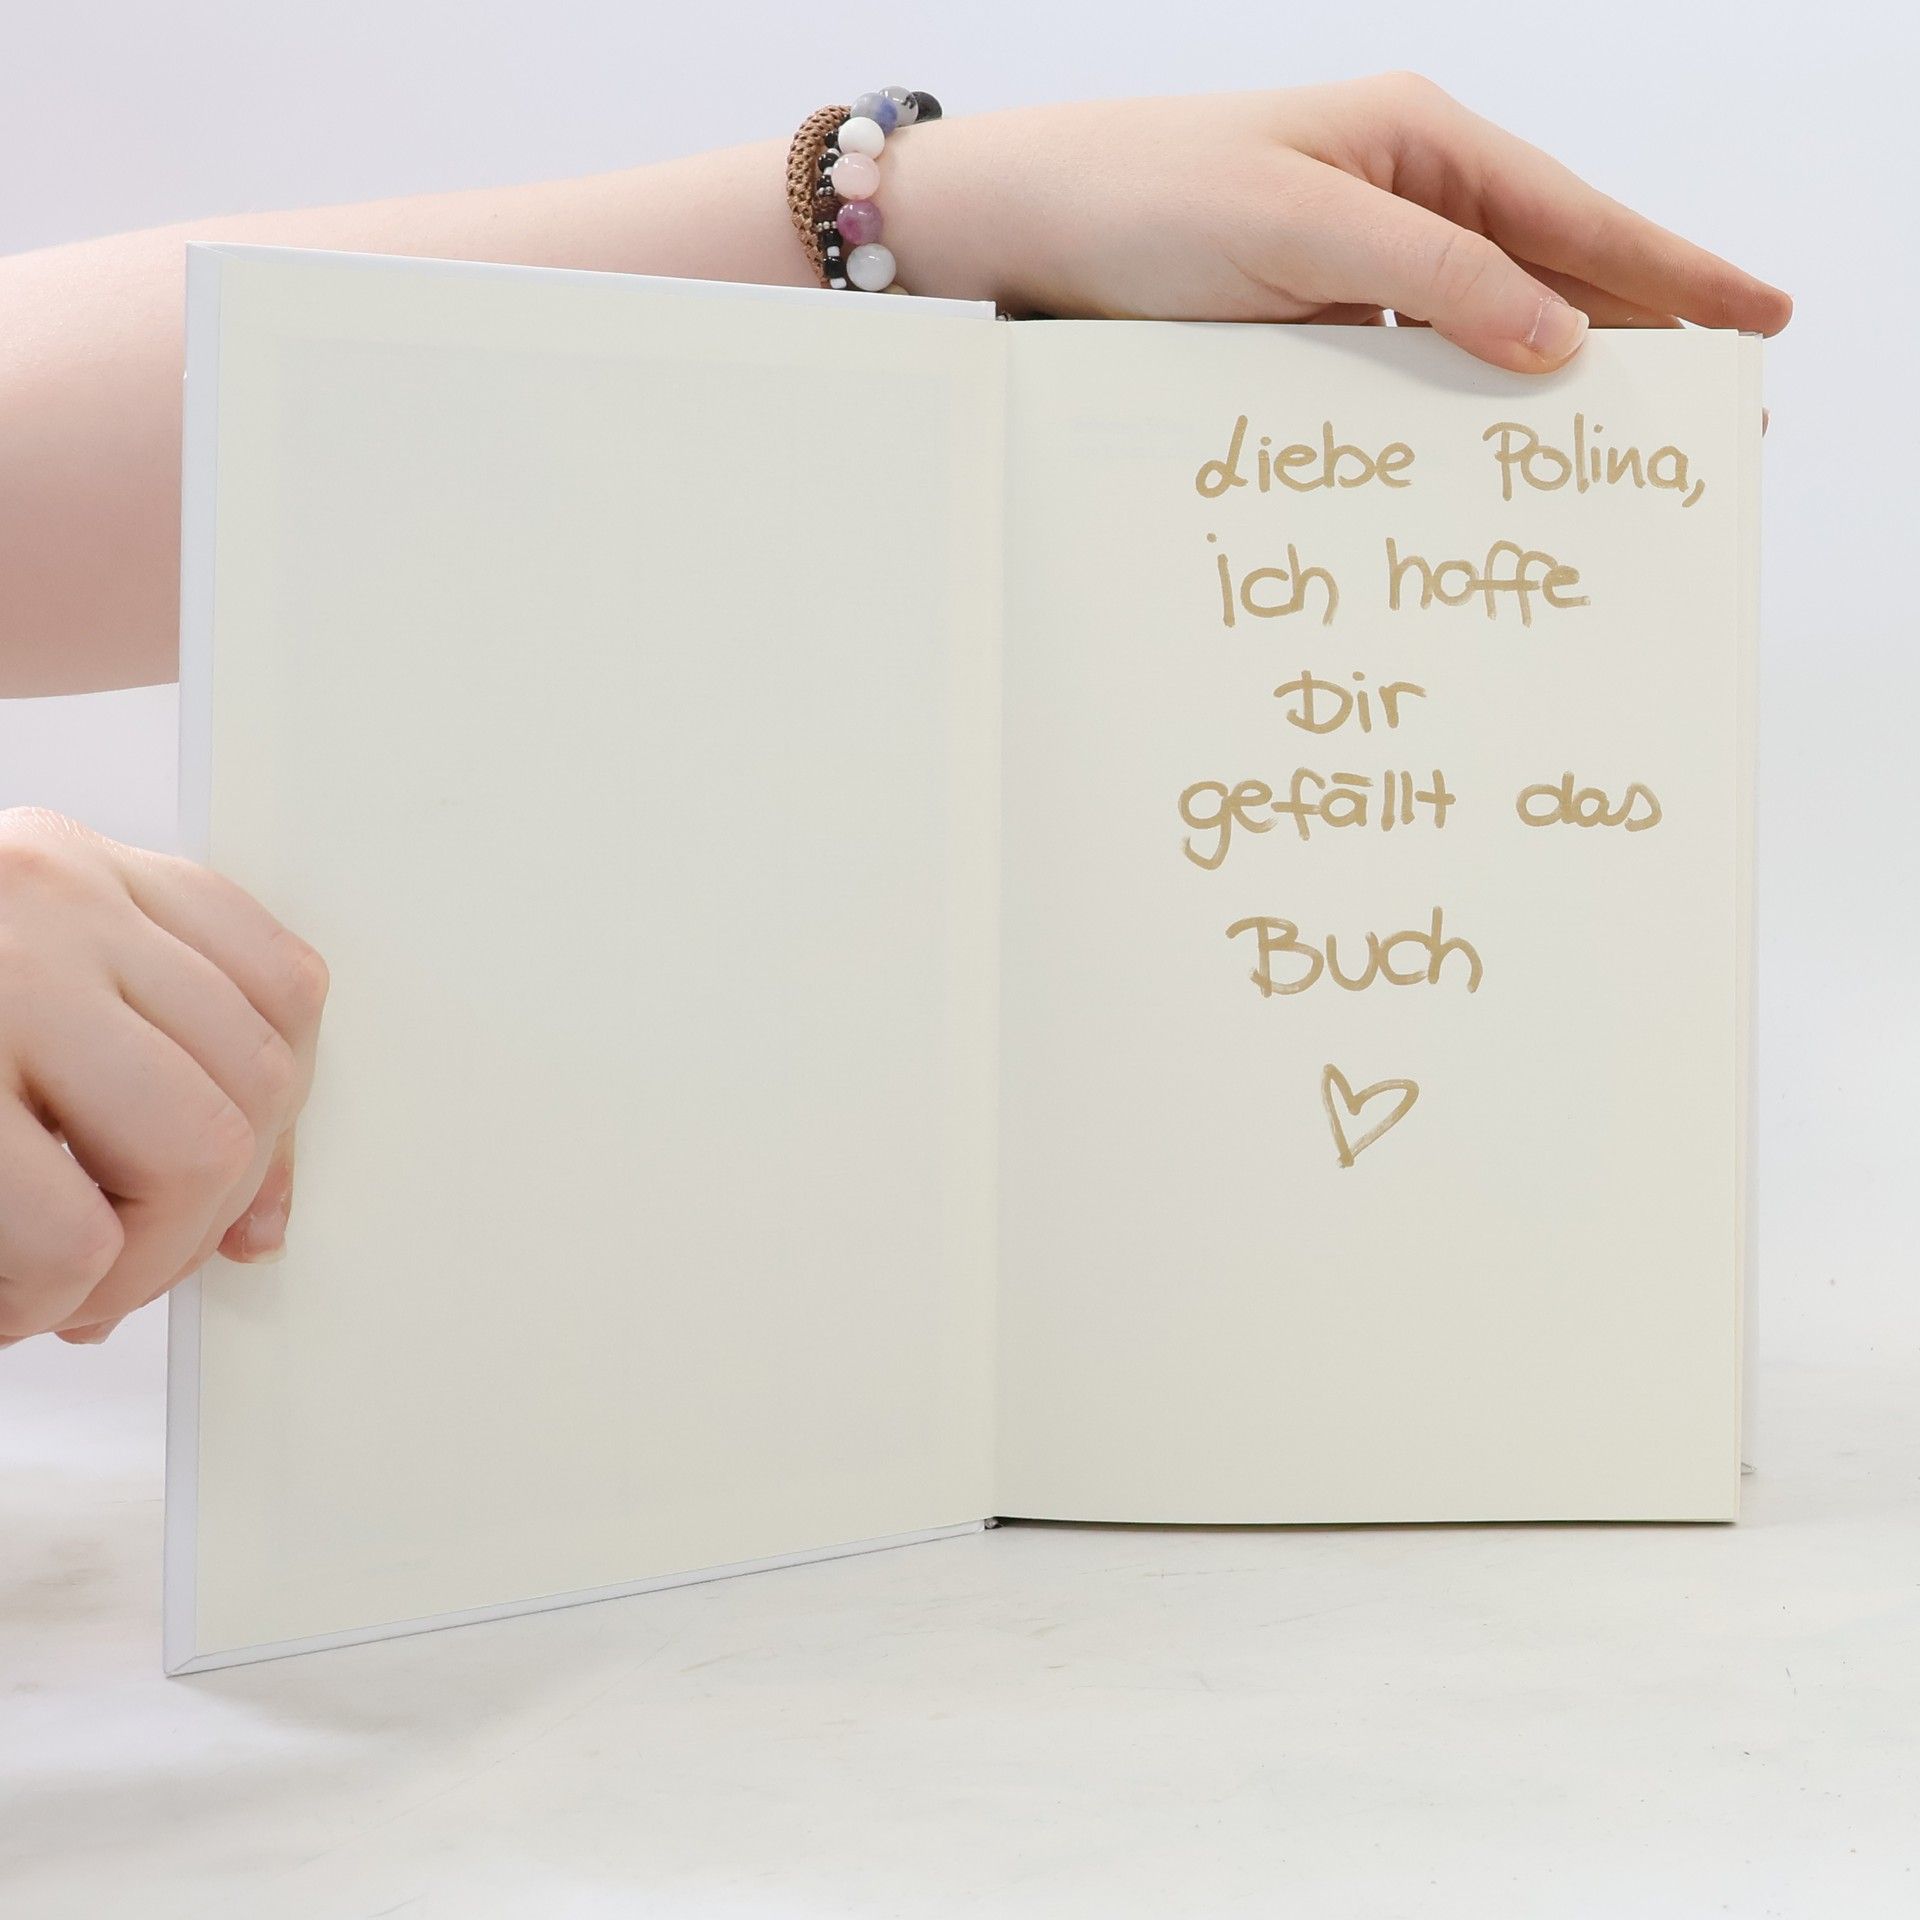 Liebe Polina,
ich hoffe
Dir
gefällt das
Buch